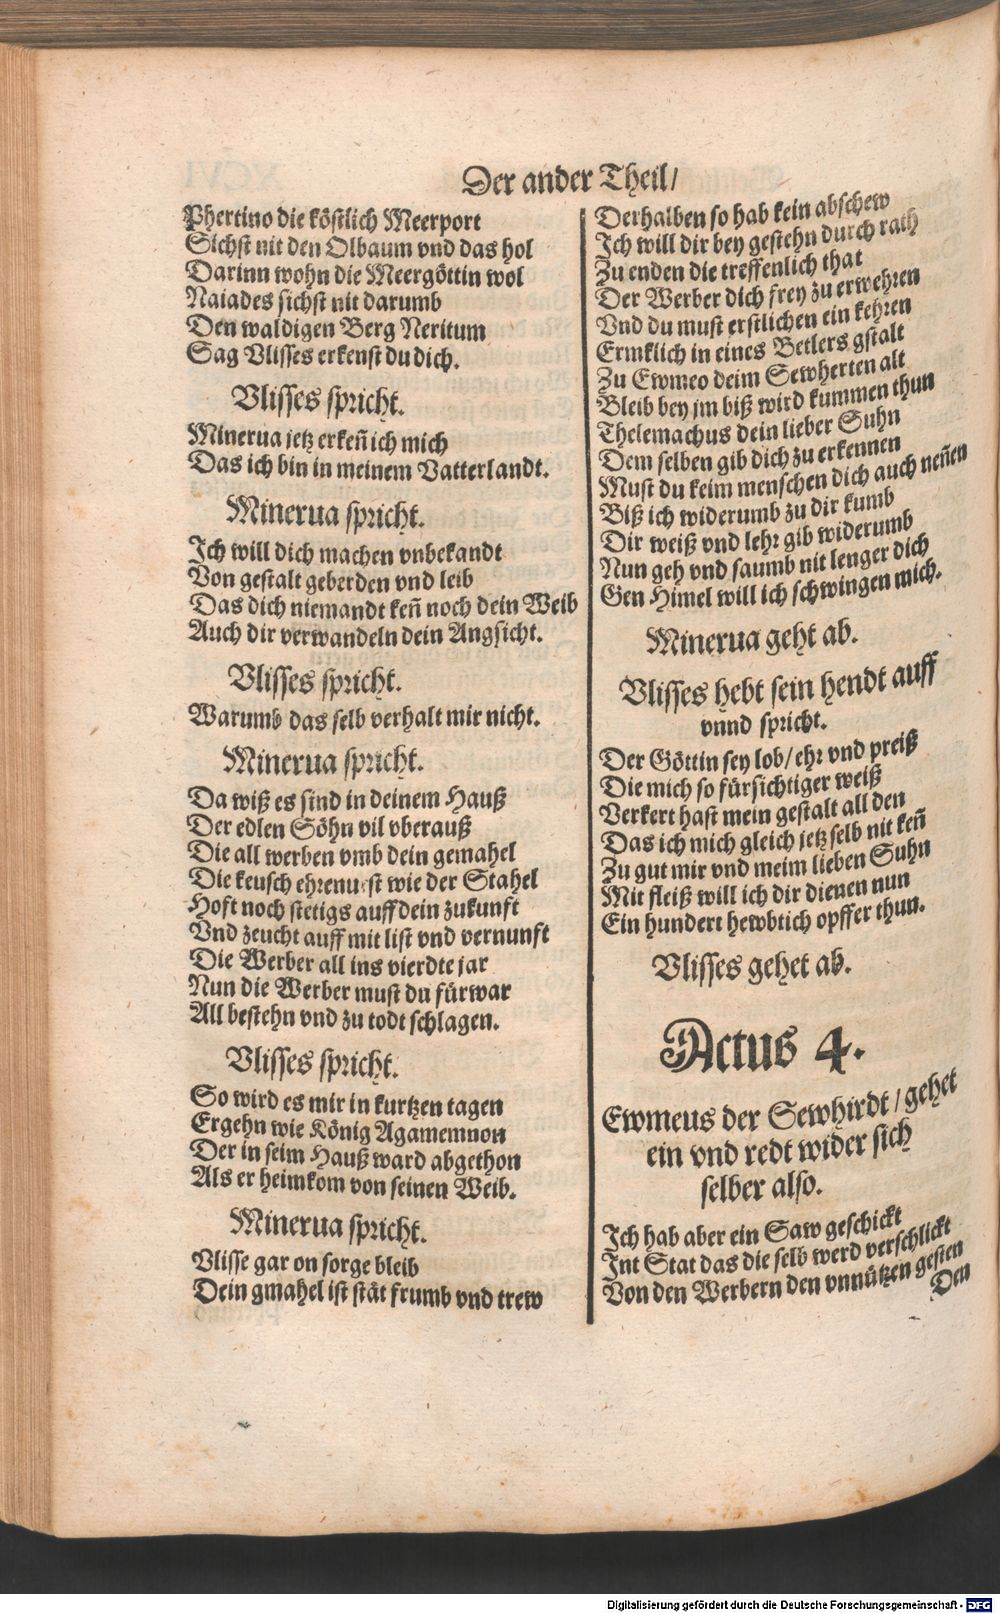 Der ander Theil/
Phertino die köstlich Meerport
Sichst nit den Olbaum vnd das hol
Darinn wohn die Meergöttin wol
Naiades sichst nit darumb
Den waldigen Berg Neritum
Sag Vlisses erkenst du dich.
Vlisses spricht.
Minerua jetz erkeñ ich mich
Das ich bin in meinem Vatterlandt.
Minerua spricht.
Ich will dich machen vnbekandt
Von gestalt geberden vnd leib
Das dich niemandt keñ noch dein Weib
Auch dir verwandeln dein Angsicht.
Vlisses spricht.
Warumb das selb verhalt mir nicht.
Minerua spricht.
Da wiß es sind in deinem Hauß
Der edlen Söhn vil vberauß
Die all werben vmb dein gemahel
Die keusch ehrenuest wie der Stahel
Hoft noch stetigs auff dein zukunft
Vnd zeucht auff mit list vnd vernunft
Die Werber all ins vierdte jar
Nun die Werber must du fürwar
All bestehn vnd zu todt schlagen.
Vlisses spricht.
So wird es mir in kurtzen tagen
Ergehn wie König Agamemnon
Der in seim Hauß ward abgethon
Als er heimkom von seinen Weib.
Minerua spricht.
Vlisse gar on sorge bleib
Dein gmahel ist stät frumb vnd trew
Derhalben so hab kein abschew
Ich will dir bey gestehn durch rath
Zu enden die treffenlich that
Der Werber dich frey zu erwehren
Vnd du must erstlichen ein kehren
Ermklich in eines Betlers gstalt
Zu Ewmeo deim Sewherten alt
Bleib bey jm biß wird kummen thun
Thelemachus dein lieber Suhn
Dem selben gib dich zu erkennen
Must du keim menschen dich auch neñen
Biß ich widerumb zu dir kumb
Dir weiß vnd lehr gib widerumb
Nun geh vnd saumb nit lenger dich
Gen Himel will ich schwingen mich.
Minerua geht ab.
Vlisses hebt sein hendt auff
vnnd spricht.
Der Göttin sey lob/ ehr vnd preiß
Die mich so fürsichtiger weiß
Verkert hast mein gestalt all den
Das ich mich gleich jetz selb nit keñ
Zu gut mir vnd meim lieben Suhn
Mit fleiß will ich dir dienen nun
Ein hundert hewbtich opffer thun.
Vlisses gehet ab.
Actus 4.
Ewmeus der Sewhirdt/ gehet
ein vnd redt wider sich
selber also.
Ich hab aber ein Saw geschickt
Int Stat das die selb werd verschlickt
Von den Werbern den vnnützen gesten
Den
Digitalisierung gefördert durch die Deutsche Forschungsgemeinschaft - DFG